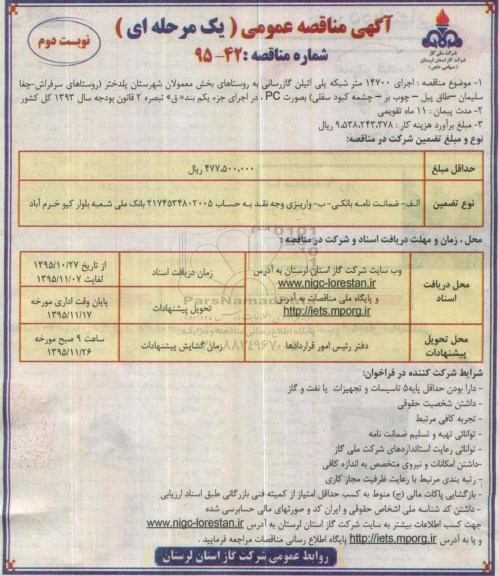 آگهی مناقصه عمومی ( یک مرحله ای )
شماره مناقصه : ۴۲- ۹۵
نوبت دوم
شرکت ملی گاز
شرکت گاز استان لرستان
(سهامی خاص)
۱- موضوع مناقصه : اجرای ۱۴۷۰۰ متر شبکه پلی اتیلن گازرسانی به روستاهای بخش معمولان شهرستان پلدختر (روستاهای سرفراش-چغا
سلیمان –طاق پیل – چوب بر – چشمه کبود سفلی) بصورت PC ، در اجرای جزء یکم بند« ق» تبصره ۲ قانون بودجه سال ۱۳۹۳ کل کشور
۲- مدت پیمان : ۱۱ ماه تقویمی
۳- مبلغ برآورد هزینه کار : ۹،۵۳۸،۲۴۳،۳۷۸ ریال
نوع و مبلغ تضمین شرکت در مناقصه:
حداقل مبلغ
۴۷۷،۵۰۰،۰۰۰ ریال
نوع تضمین
الف- ضمانت نامه بانکی- ب- واریزی وجه نقد به حساب ۲۱۷۴۵۳۴۸۰۲۰۰۵ بانک ملی شعبه بلوار کیو خرم آباد
محل ، زمان و مهلت دریافت اسناد و شرکت در مناقصه :
محل دریافت
اسناد
وب سایت شرکت گاز استان لرستان به آدرس
www.nigc-lorestan.ir
و پایگاه ملی مناقصات به آدرس
http://iets.mporg.ir
زمان دریافت اسناد
از تاریخ ۱۳۹۵/۱۰/۲۷
لغایت ۱۳۹۵/۱۱/۰۷
تحویل پیشنهادات
پایان وقت اداری مورخه
۱۳۹۵/۱۱/۱۷
محل تحویل
پیشنهادات
دفتر رئیس امور قراردادها
زمان گشایش پیشنهادات
ساعت ۹ صبح مورخه
۱۳۹۵/۱۱/۲۶
ParsNamadData
پایگاه اطلاع رسانی مناقصه و مزایده
شرایط شرکت کننده در فراخوان:
- دارا بودن حداقل پایه۵ تاسیسات و تجهیزات یا نفت و گاز
- داشتن شخصیت حقوقی
- تجربه کافی مرتبط
- توانائی تهیه و تسلیم ضمانت نامه
- توانائی رعایت استانداردهای شرکت ملی گاز
-داشتن امکانات و نیروی متخصص به اندازه کافی
- رتبه بندی مرتبط با رعایت ظرفیت مجاز کاری
- بازگشایی پاکات مالی (ج) منوط به کسب حداقل امتیاز از کمیته فنی بازرگانی طبق اسناد ارزیابی
- داشتن کد شناسه ملی اشخاص حقوقی و ایران کد و صورتهای مالی حسابرسی شده
جهت کسب اطلاعات بیشتر به سایت شرکت گاز استان لرستان به آدرس www.nigc-lorestan.ir
و یا به آدرس http://iets.mporg.ir پایگاه اطلاع رسانی مناقصات مراجعه فرمایید .
روابط عمومی شرکت گاز استان لرستان